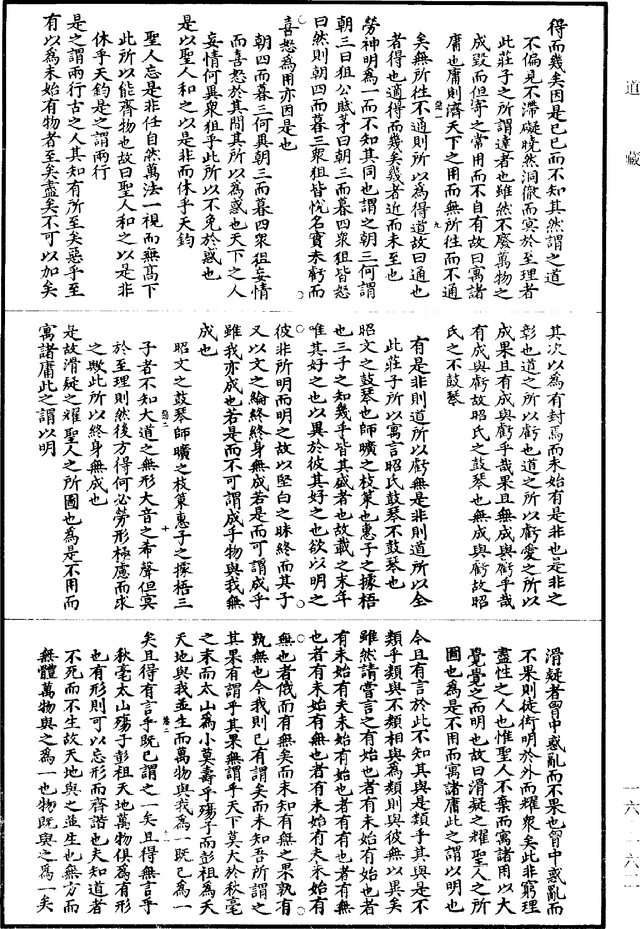 道藏
得而幾矣因是已已而不知其然謂之道
不偏見不滯礙曉然洞徹而冥於至理者
此莊子之所謂達者也雖然不廢萬物之
成毀而但寄之常用而不自有故曰寓諸
庸也庸則濟天下之用而無所往而不通
矣無所往不通則所以為得道故曰通也
者得也適得而幾矣幾者近而未至也
勞神明為一而不知其同也謂之朝三何謂
朝三曰狙公賦茅曰朝三而暮四衆狙皆怒
曰然則朝四而暮三衆狙皆悅名實未虧而
喜怒為用亦因是也
朝四而暮三何異朝三而暮四衆狙妄情
而喜怒於其間其所以為惑也天下之人
妄情何異衆狙乎此所以不免於惑也
是以聖人和之以是非而休乎天鈞
聖人忘是非任自然萬法一視而無高下
此所以能齊物也故曰聖人和之以是非
休乎天鈞是之謂兩行
是之謂兩行古之人其知有所至矣惡乎至
有以為未始有物者至矣盡矣不可以加矣
其次以為有封焉而未始有是非也是非之
彰也道之所以虧也道之所以虧愛之所以
成果且有成與虧乎哉果且無成與虧乎哉
有成與虧故昭氏之鼓琴也無成與虧故昭
氏之不鼓琴
有是非則道所以虧無是非則道所以全
此莊子所以寓言昭氏鼓琴不鼓琴也
昭文之鼓琴也師曠之枝策也惠子之據梧
也三子之知幾乎皆其盛者也故載之末年
唯其好之也以異於彼其好之也欲以明之
彼非所明而明之故以堅白之昧終而其子
又以文之綸終終身無成若是而可謂成乎
雖我亦成也若是而不可謂成乎物與我無
成也
昭文之鼓琴師曠之枝策惠子之據梧三
子者不知大道之無形大音之希聲但冥
於至理則然後方得何必勞形極慮而求
之歟此所以終身無成也
是故滑疑之耀聖人之所圖也為是不用而
寓諸庸此之謂以明
滑疑者胷中惑亂而不果也胷中惑亂而
不果則徒衒明於外而耀衆矣此非窮理
盡性之人也惟聖人不棄而寓諸用以大
覺覺之而明也故曰滑疑之耀聖人之所
圖也為是不用而寓諸庸此之謂以明也
今且有言於此不知其與是類乎其與是不
類乎類與不類相與為類則與彼無以異矣
雖然請嘗言之有始也者有未始有始也者
有未始有夫未始有始也者有有也者有無
也者有未始有無也者有未始有夫未始有
無也者俄而有無矣而未知有無之果孰有
孰無也今我則已有謂矣而未知吾所謂之
其果有謂乎其果無謂乎天下莫大於秋毫
之末而太山為小莫壽乎殤子而彭祖為夭
天地與我並生而萬物與我為一既已為一
矣且得有言乎既已謂之一矣且得無言乎
秋毫太山殤子彭祖天地萬物俱為有形
也有形則可以忘形而齊諧也夫知道者
不死而不生故天地與之並生也無方而
無體萬物與之為一也物既與之為一矣